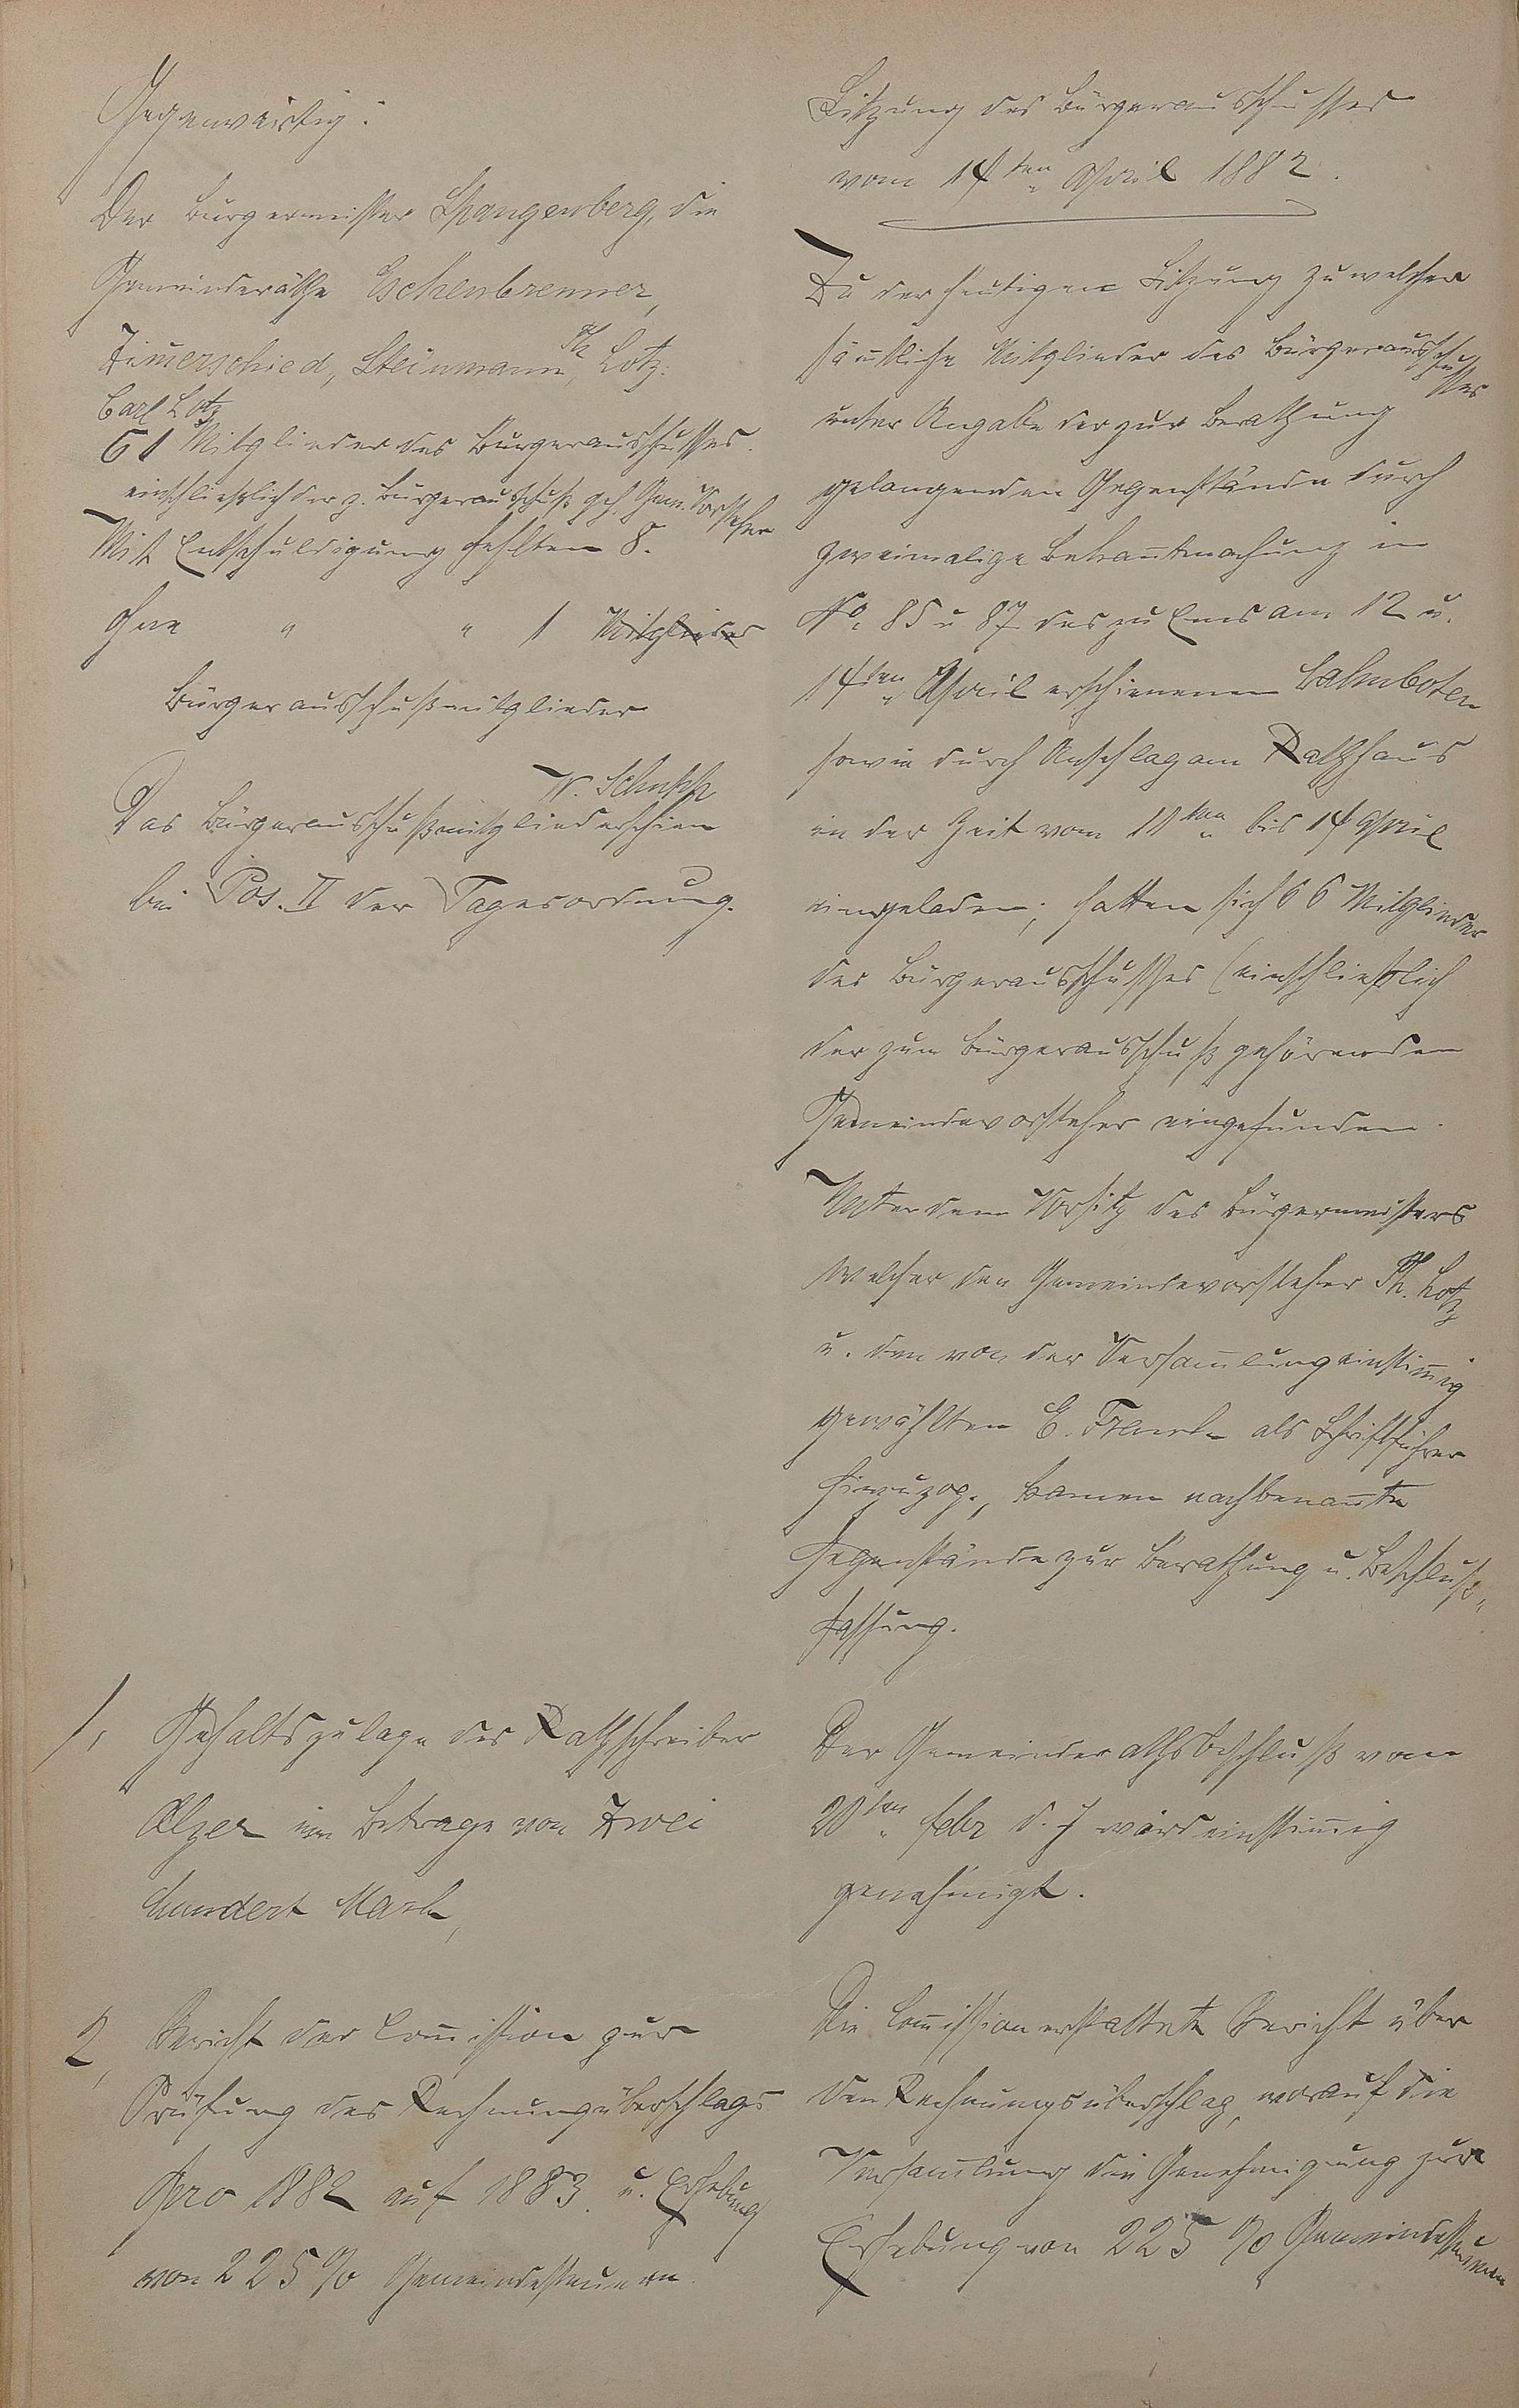 Gegenwärtig:
Der Bürgermeister Spangenberg, die
Gemeinderäthe Eschenbrenner,
Zim̅erschied, Steinmann, Ph Lotz.
Carl Lotz
61 Mitglieder des Bürgerausschusses.
einschließlich der z. Bürgerausschuß geh. Gem. Vorsteher
Mit Entschuldigung fehlten 8.
Ohne " " 1 Mitglieder
Bürgerausschußmitglieder
W. Schupp
Das Bürgerausschußmitglied erschien
bei Pos. II der Tagesordnung.
1, Gehaltszulage des Rathschreiber
Elzer im Betrage von Zwei
hundert Mark,
2, Bericht der Com̅ission zur
Prüfung des Rechnungsüberschlags
pro 1882 auf 1883. u. Erhebung
von 225% Gemeindesteuern.
Sitzung des Bürgerausschusses
vom 14ten April 1882.
Zu der heutigen Sitzung zu welcher
säm̅tliche Mitglieder des Bürgerausschusses
unter Angabe der zur Berathung
gelangenden Gegenstände durch
zweimalige Bekan̅tmachung in
No. 85 u 87 des zu Ems am 12 u.
14ten April erschienenen Lahnboten
sowie durch Anschlag am Rathhaus
in der Zeit vom 11ten bis 14 April
eingeladen; hatten sich 66 Mitglieder
des Bürgerausschusses (einschließlich
der zum Bürgerausschuß gehörenden
Gemeindevorsteher eingefunden.
Unter dem Vorsitz des Bürgermeisters
welcher den Gemeindevorsteher Ph. Lotz
u. den von der Versam̅lung einstim̅ig
gewählten E. Frank als Schriftführer
hinzuzog, kamen nachbenan̅te
Gegenstände zur Berathung u. Beschluß-
fassung.
Der Gemeinderathsbeschluß vom
20ten febr d. J wird einstim̅ig
genehmigt.
Die Com̅ission erstattete Bericht über
den Rechnungsüberschlag, worauf die
Versam̅lung die Genehmigung zur
Erhebung von 225 % Gemeindesteuern